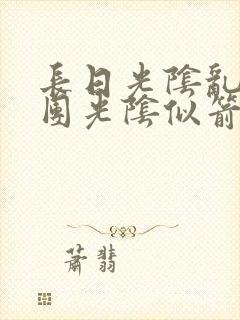 長日光陰亂
園光陰似箭
蕭翡